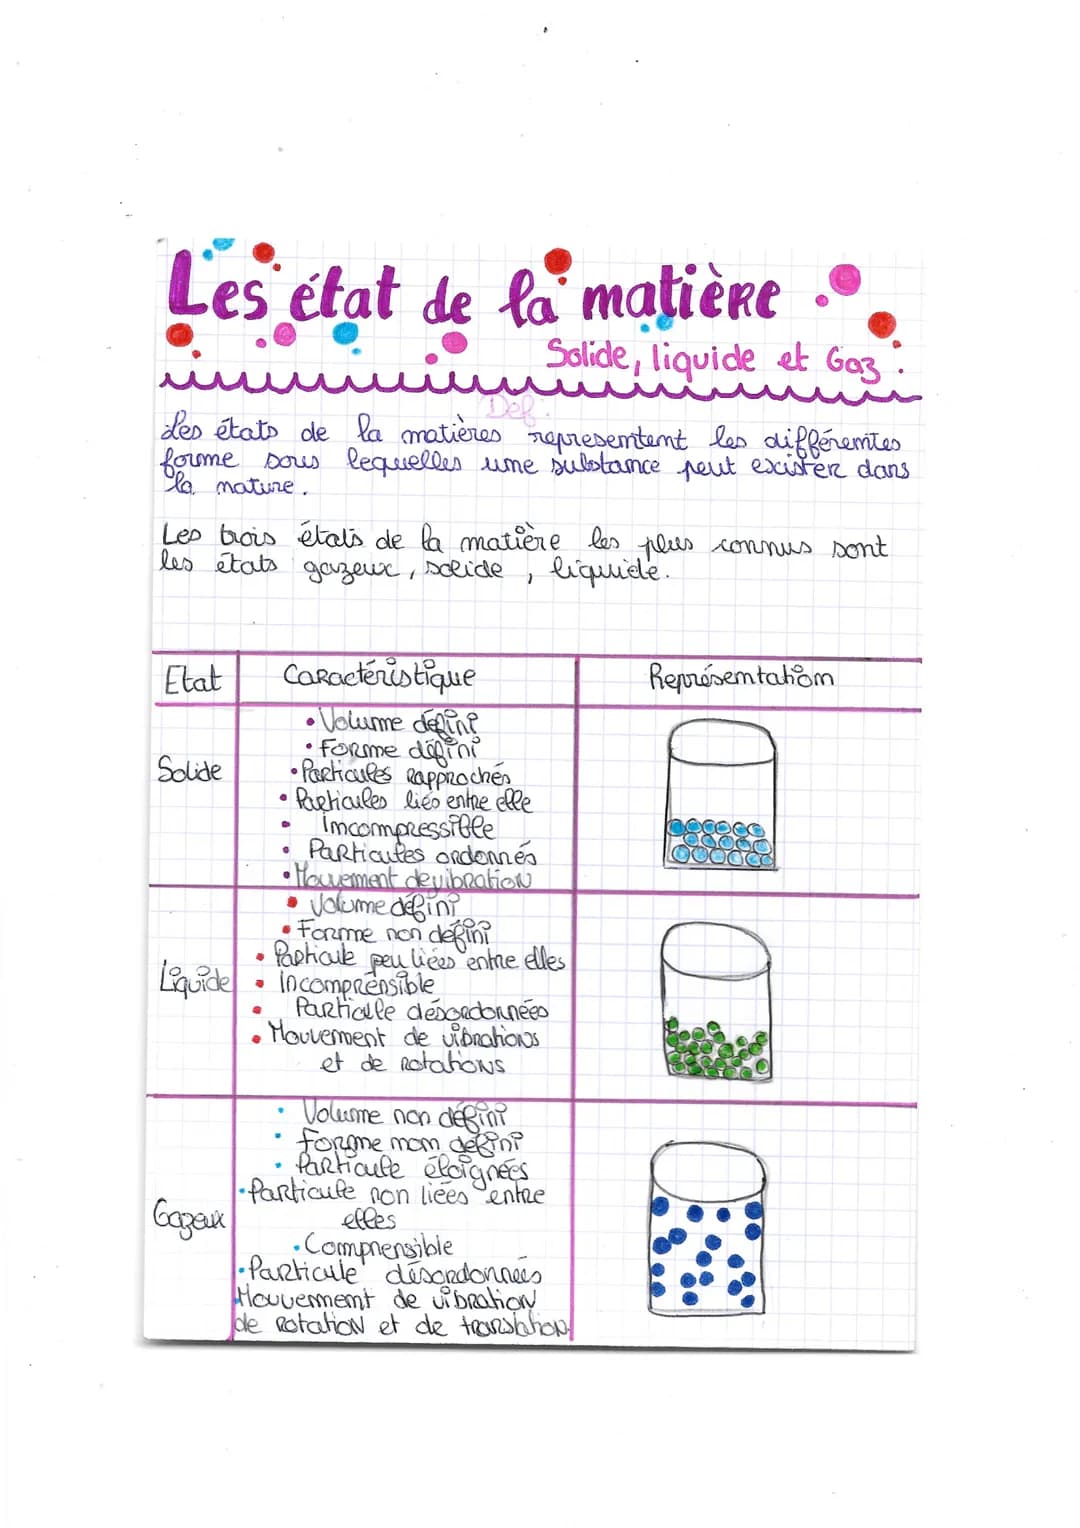 Les état de la matière
Solide, liquide et Gaz.
Def:
Les états de la matières representent les différentes
forme sous lequelles une substance peut exister dans
la nature.
Les trois états de la matière les plus connus sont
les états gazeux, solide, liquide.
Etat
Caractéristique
Représentation
Solide
• Volume défini
• Forme défini
• Particules rapprochés
• Particules liés entre elle
• Imcompressible
• Particules ordonnés
• Mouvement de vibration
Liquide
• Volume défini
• Forme non défini
• Particule peu liées entre elles
• Incomprensible
• Particule désordonnées
• Mouvement de vibrations
et de rotations
Gazeux
• Volume non défini
• Forme non défini
• Particule éloignées
• Particule non liées entre
elles
• Comprensible
• Particule désordonnées
Mouvement de vibration
de rotation et de translation